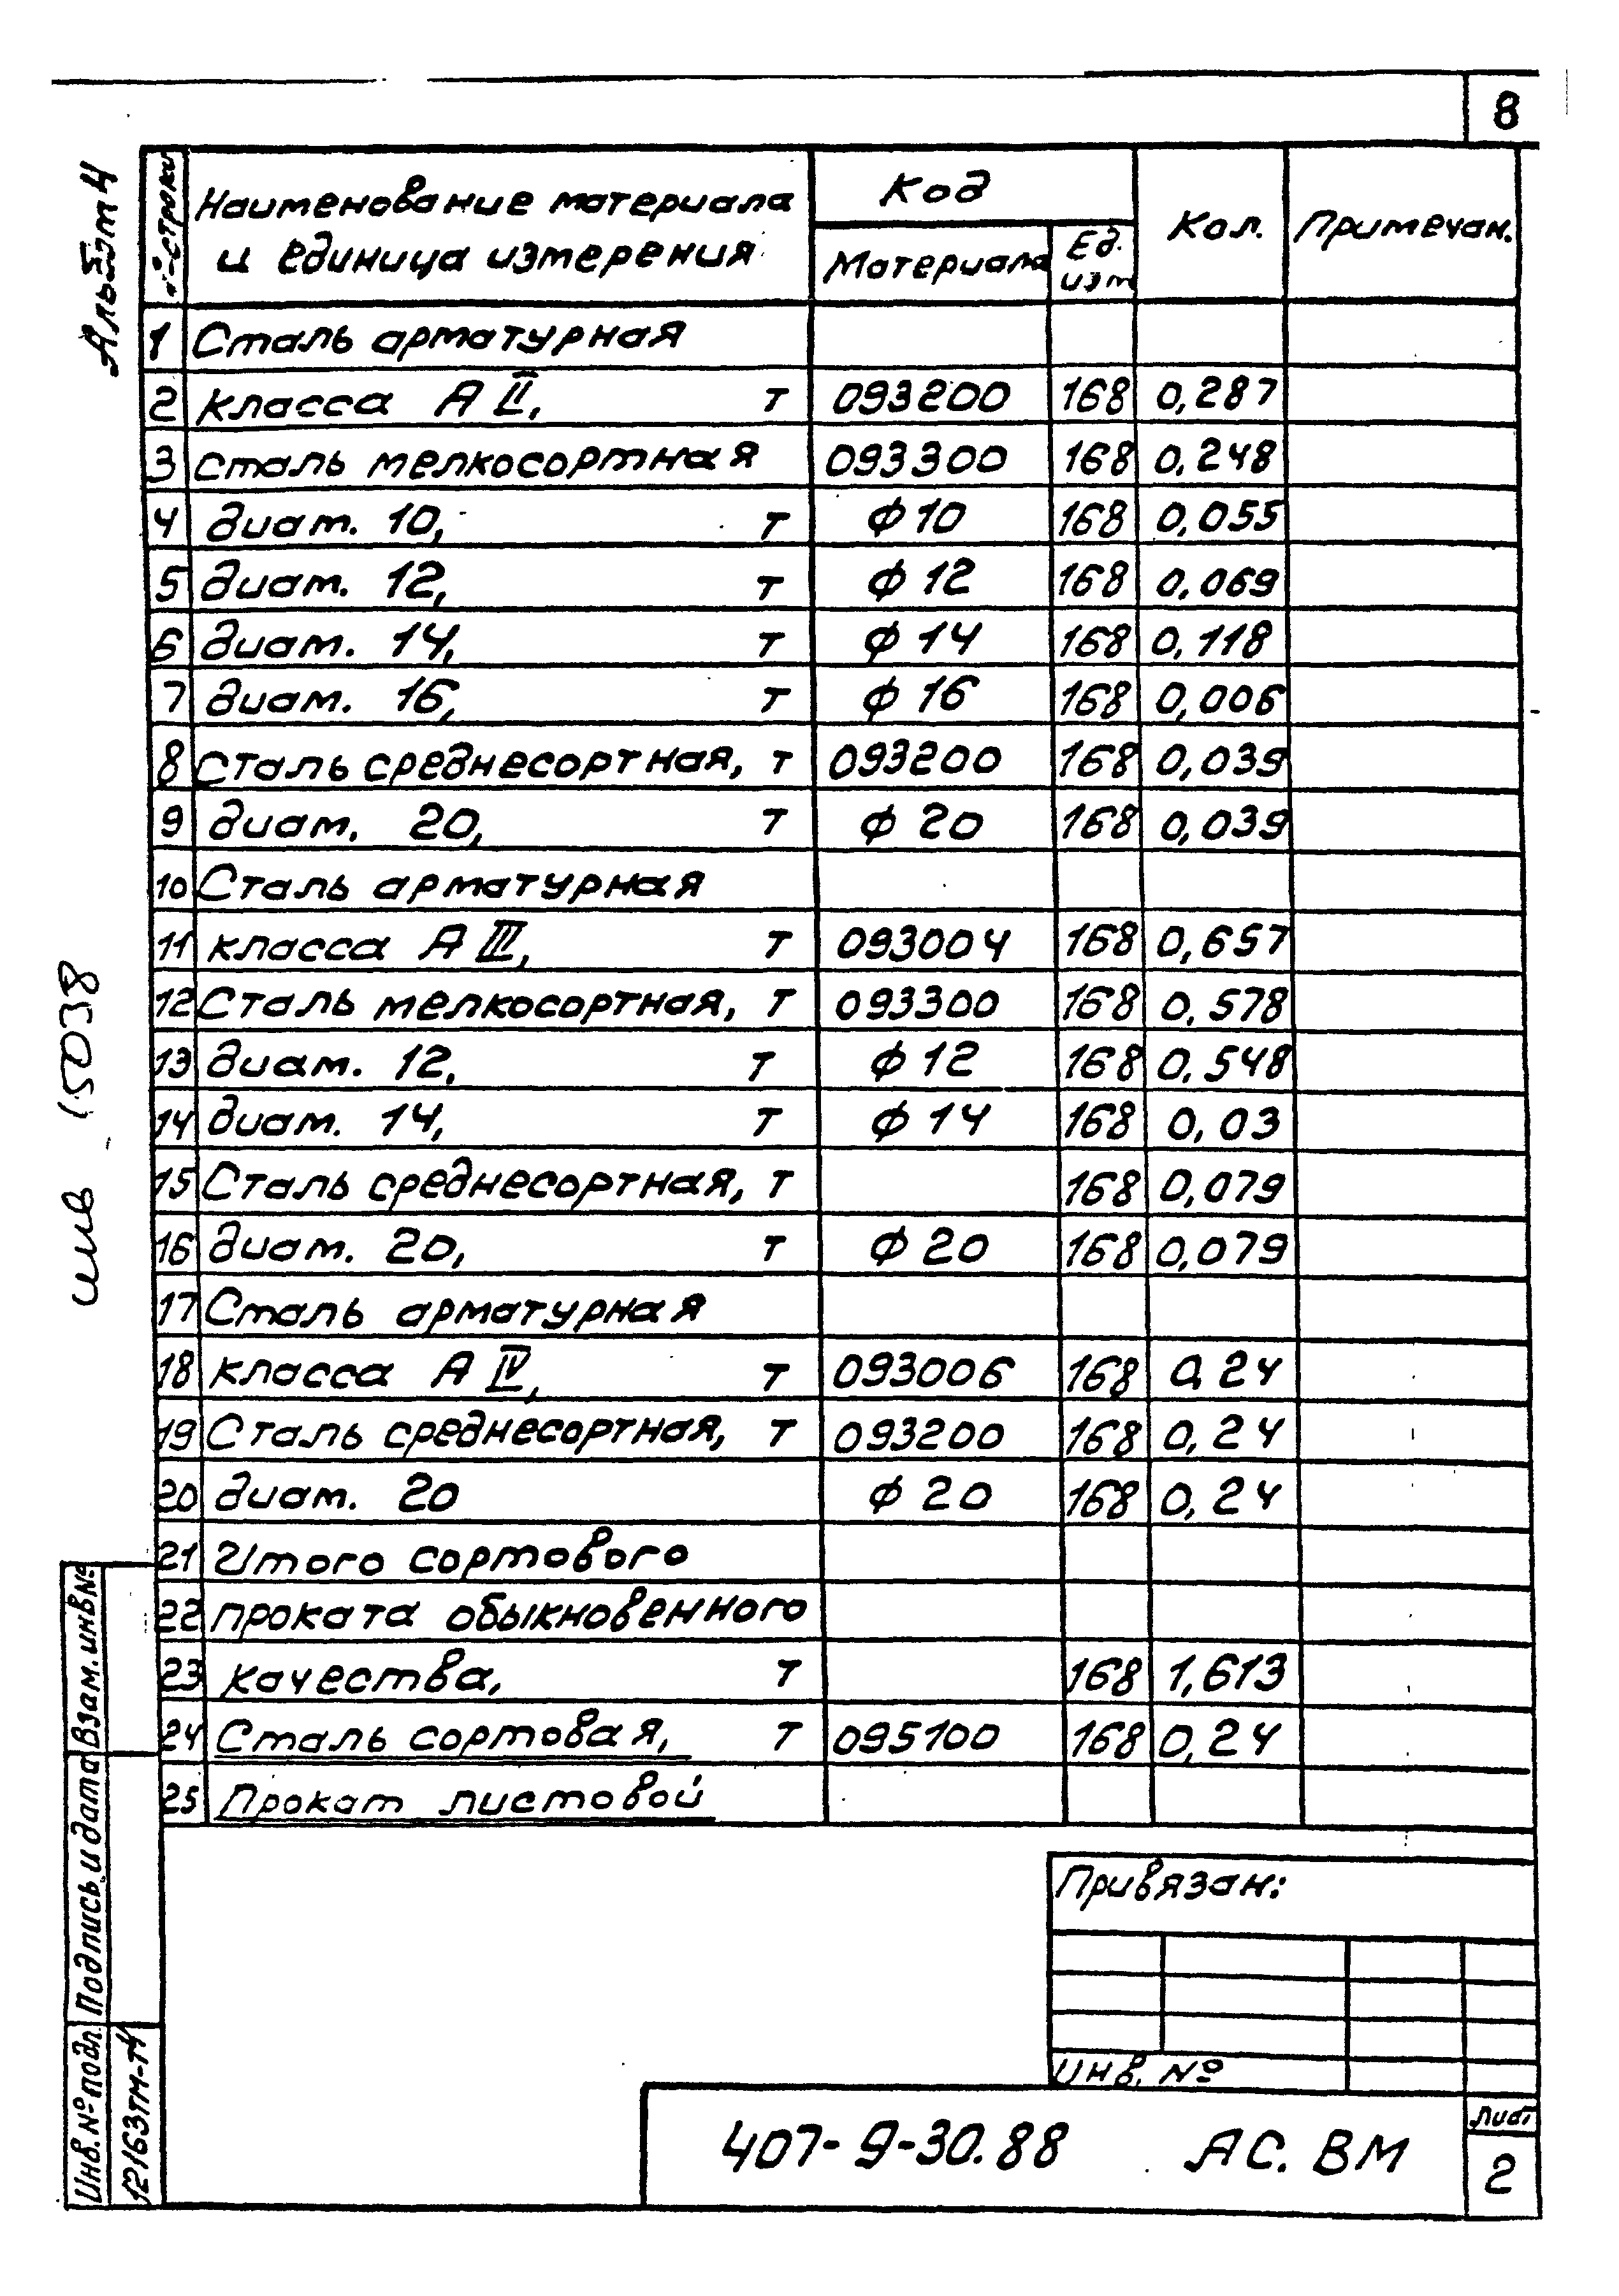 8
Альбом 4
№ строки Наименование материала и единица измерения Код Кол. Примечан.
Материала Ед. изм
1 Сталь арматурная
2 класса А II, т 093200 168 0,287
3 сталь мелкосортная 093300 168 0,248
4 диам. 10, т ф 10 168 0,055
5 диам. 12, т ф 12 168 0,069
6 диам. 14, т ф 14 168 0,118
7 диам. 16, т ф 16 168 0,006
8 Сталь среднесортная, т 093200 168 0,039
9 диам. 20, т ф 20 168 0,039
10 Сталь арматурная
11 класса А III, т 093004 168 0,657
12 Сталь мелкосортная, т 093300 168 0,578
13 диам. 12, т ф 12 168 0,548
14 диам. 14, т ф 14 168 0,03
15 Сталь среднесортная, т 168 0,079
16 диам. 20, т ф 20 168 0,079
17 Сталь арматурная
18 класса А IV, т 093006 168 0,24
19 Сталь среднесортная, т 093200 168 0,24
20 диам. 20 ф 20 168 0,24
21 Итого сортового
22 проката обыкновенного
23 качества, т 168 1,613
24 Сталь сортовая, т 095100 168 0,24
25 Прокат листовой
инв 15038
Взам.инв№
Подпись и дата
Инв.№ подл.
12163тм-т4
Привязан:
Инв. №
407-9-30.88 АС. ВМ
Лист
2